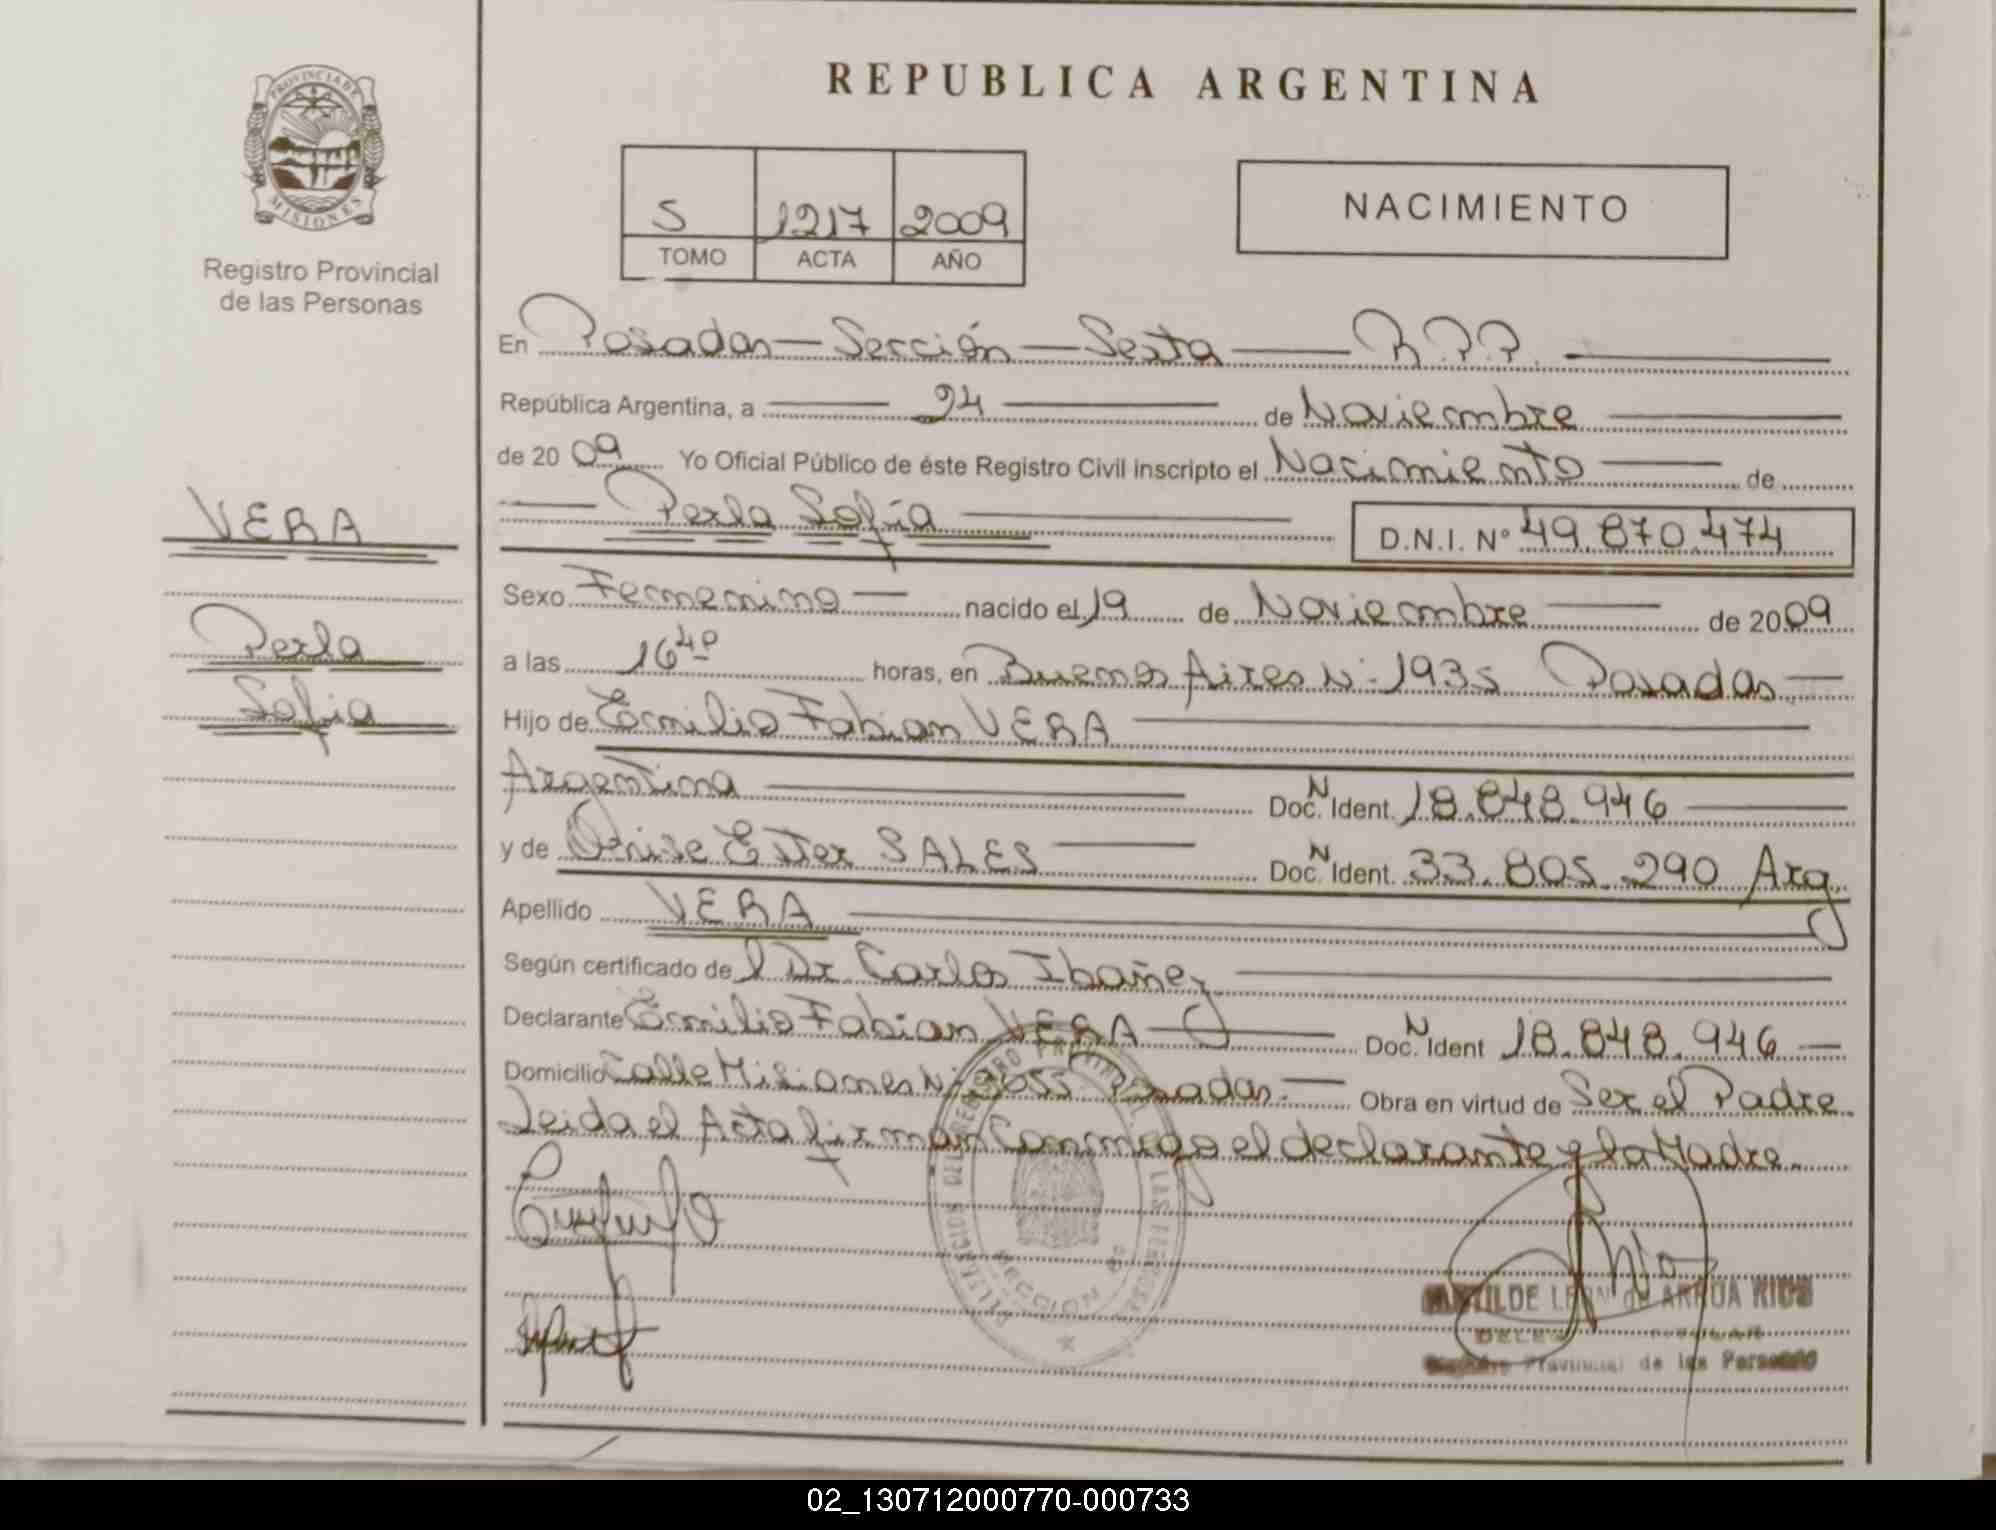 PROVINCIA DE
MISIONES
Registro Provincial
de las Personas
VERA
Perla
Sofia
REPUBLICA ARGENTINA
5 1217 2009
TOMO ACTA AÑO
NACIMIENTO
En Posadas — Sección — Sexta — R.P.P. —
República Argentina, a — 24 — de Noviembre —
de 2009 Yo Oficial Público de éste Registro Civil inscripto el Nacimiento — de
— Perla Sofía — D.N.I. Nº 49.870.474
Sexo Femenino — nacido el 19 de Noviembre — de 2009
a las 16 40 horas, en Buenos Aires N: 1935 Posadas —
Hijo de Emilio Fabian VERA —
Argentina — Doc. N Ident. 18.848.946 —
y de Denise Ester SALES — Doc. N Ident. 33.805.290 Arg.
Apellido VERA —
Según certificado de l Dr. Carlos Ibañez —
Declarante Emilio Fabian VERA — Doc. N Ident 18.848.946 —
Domicilio Calle Misiones N: Posadas. — Obra en virtud de Ser el Padre
Leida el Acta firman Conmigo el declarante y la Madre.
SECCION
MATILDE LEON de ARRUA RIOS
Registro Provincial de las Personas
02_130712000770-000733